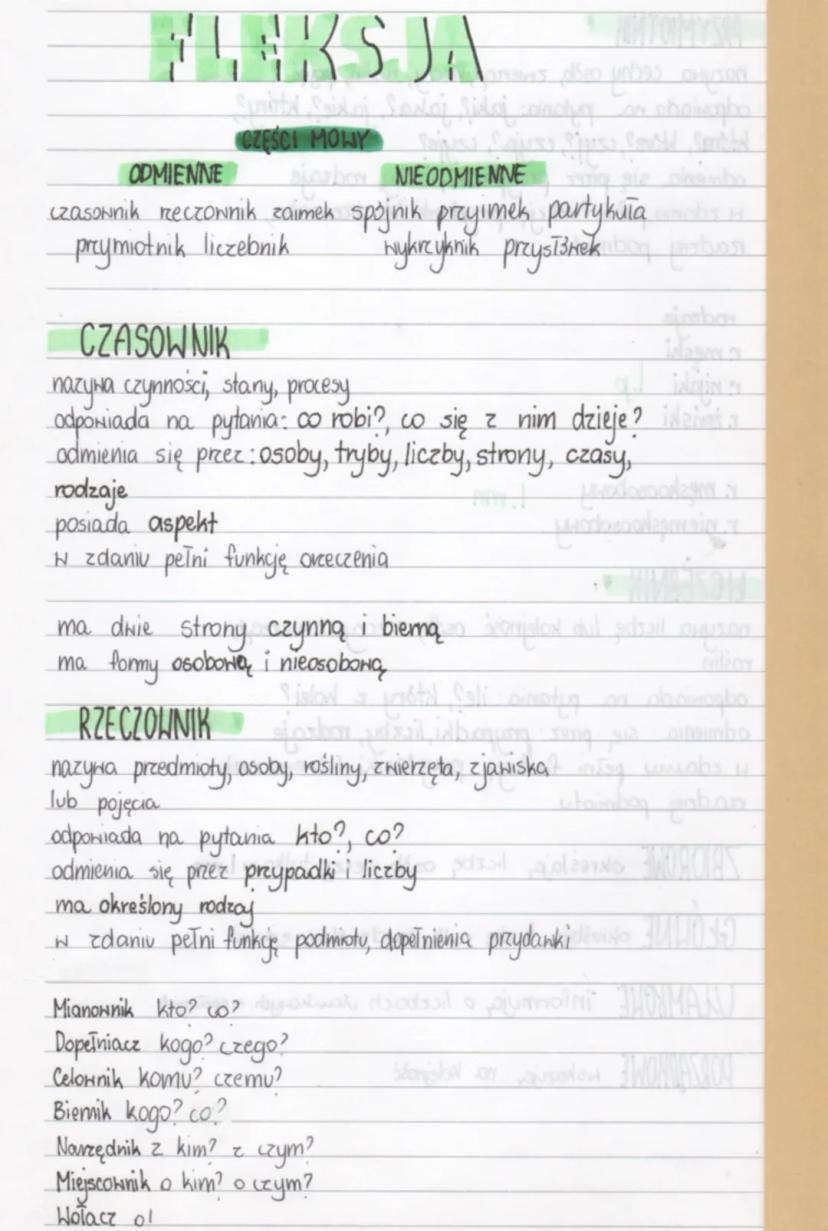 FLEKSJA
CZĘŚCI MOWY
ODMIENNE NIEODMIENNE
czasownik rzeczownik zaimek spójnik przyimek partykuła
przymiotnik liczebnik wykrzyknik przysłówek
CZASOWNIK
nazywa czynności, stany, procesy
odpowiada na pytania: co robi?, co się z nim dzieje?
odmienia się przez: osoby, tryby, liczby, strony, czasy,
rodzaje
posiada aspekt
w zdaniu pełni funkcję orzeczenia
ma dwie strony czynną i bierną
ma formy osobową i nieosobową
RZECZOWNIK
nazywa przedmioty, osoby, rośliny, zwierzęta, zjawiska
lub pojęcia
odpowiada na pytania kto?, co?
odmienia się przez przypadki i liczby
ma określony rodzaj
w zdaniu pełni funkcję podmiotu, dopełnienia przydawki
Mianownik kto? co?
Dopełniacz kogo? czego?
Celownik komu? czemu?
Biernik kogo? co?
Narzędnik z kim? z czym?
Miejscownik o kim? o czym?
Wołacz o!